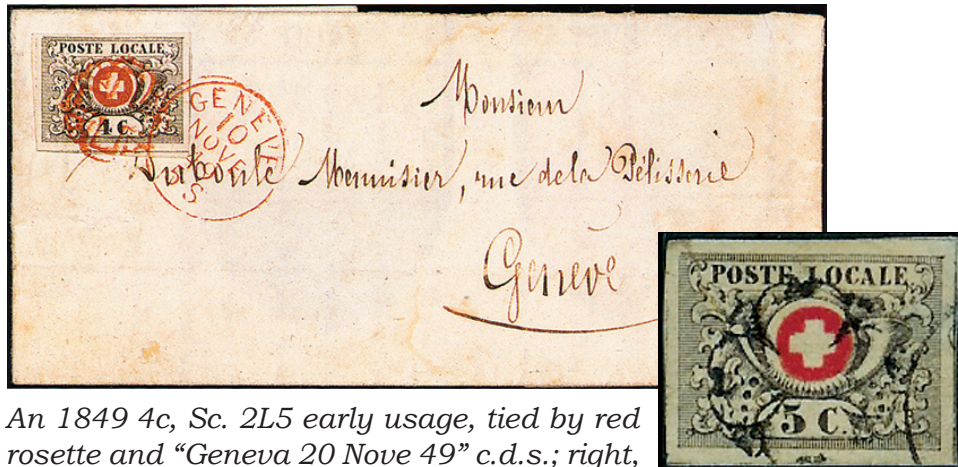 POSTE LOCALE
4 C.
GENEVE
10
NOVE
Monsieur
Menuisier, rue de la Pélisserie
Genève
POSTE LOCALE
5 C.
An 1849 4c, Sc. 2L5 early usage, tied by red
rosette and “Geneva 20 Nove 49” c.d.s.; right,